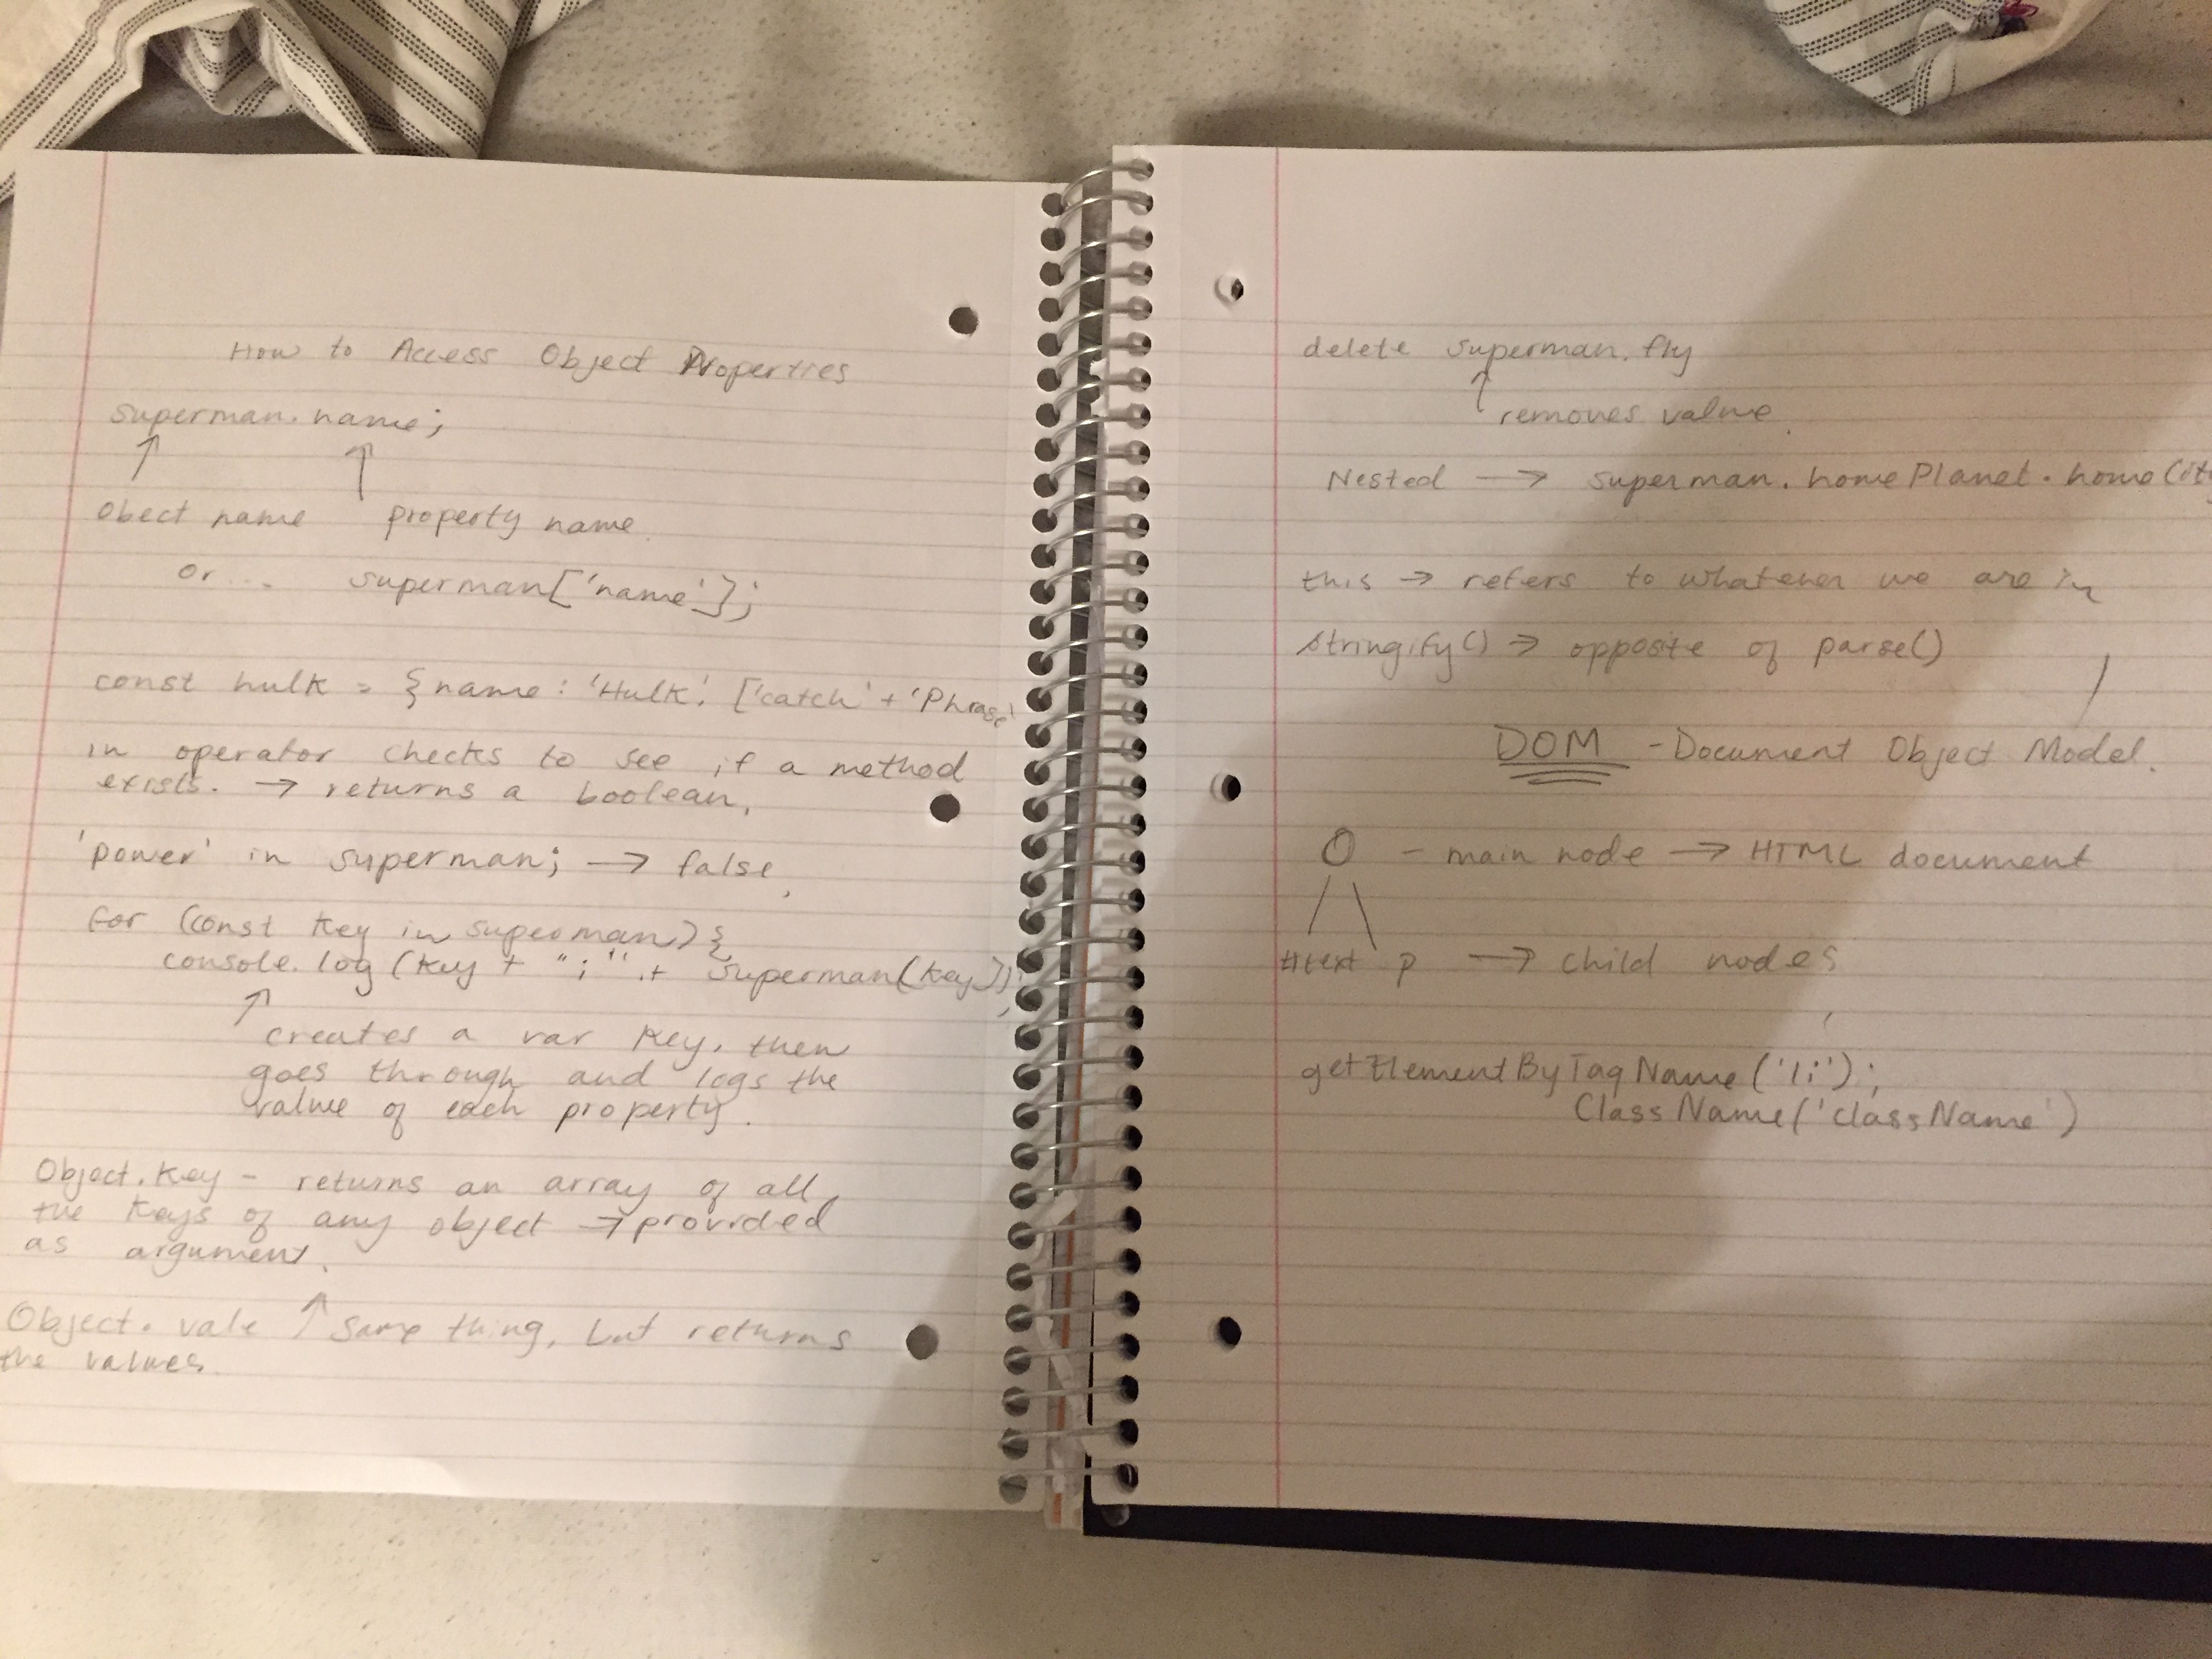 How to Access Object Properties
Superman.name;
Object name property name.
or... superman['name'];
const hulk = {name: 'Hulk', ['catch' + 'Phrase'
in operator checks to see if a method
exists. → returns a boolean.
'power' in superman; → false.
for (const key in superman) {
console.log(key + ": " + superman[key]);
creates a var key, then
goes through and logs the
value of each property.
Object.key - returns an array of all
the keys of any object → provided
as argument.
Object.vale ↑ same thing, but returns
the values.
delete superman.fly
removes value.
Nested → superman.homePlanet.
this → refers to whatever we are in
stringify() → opposite of parse()
DOM - Document Object Model.
O - main node → HTML document
p → child nodes
getElementByTagName('li');
ClassName('classNanne')